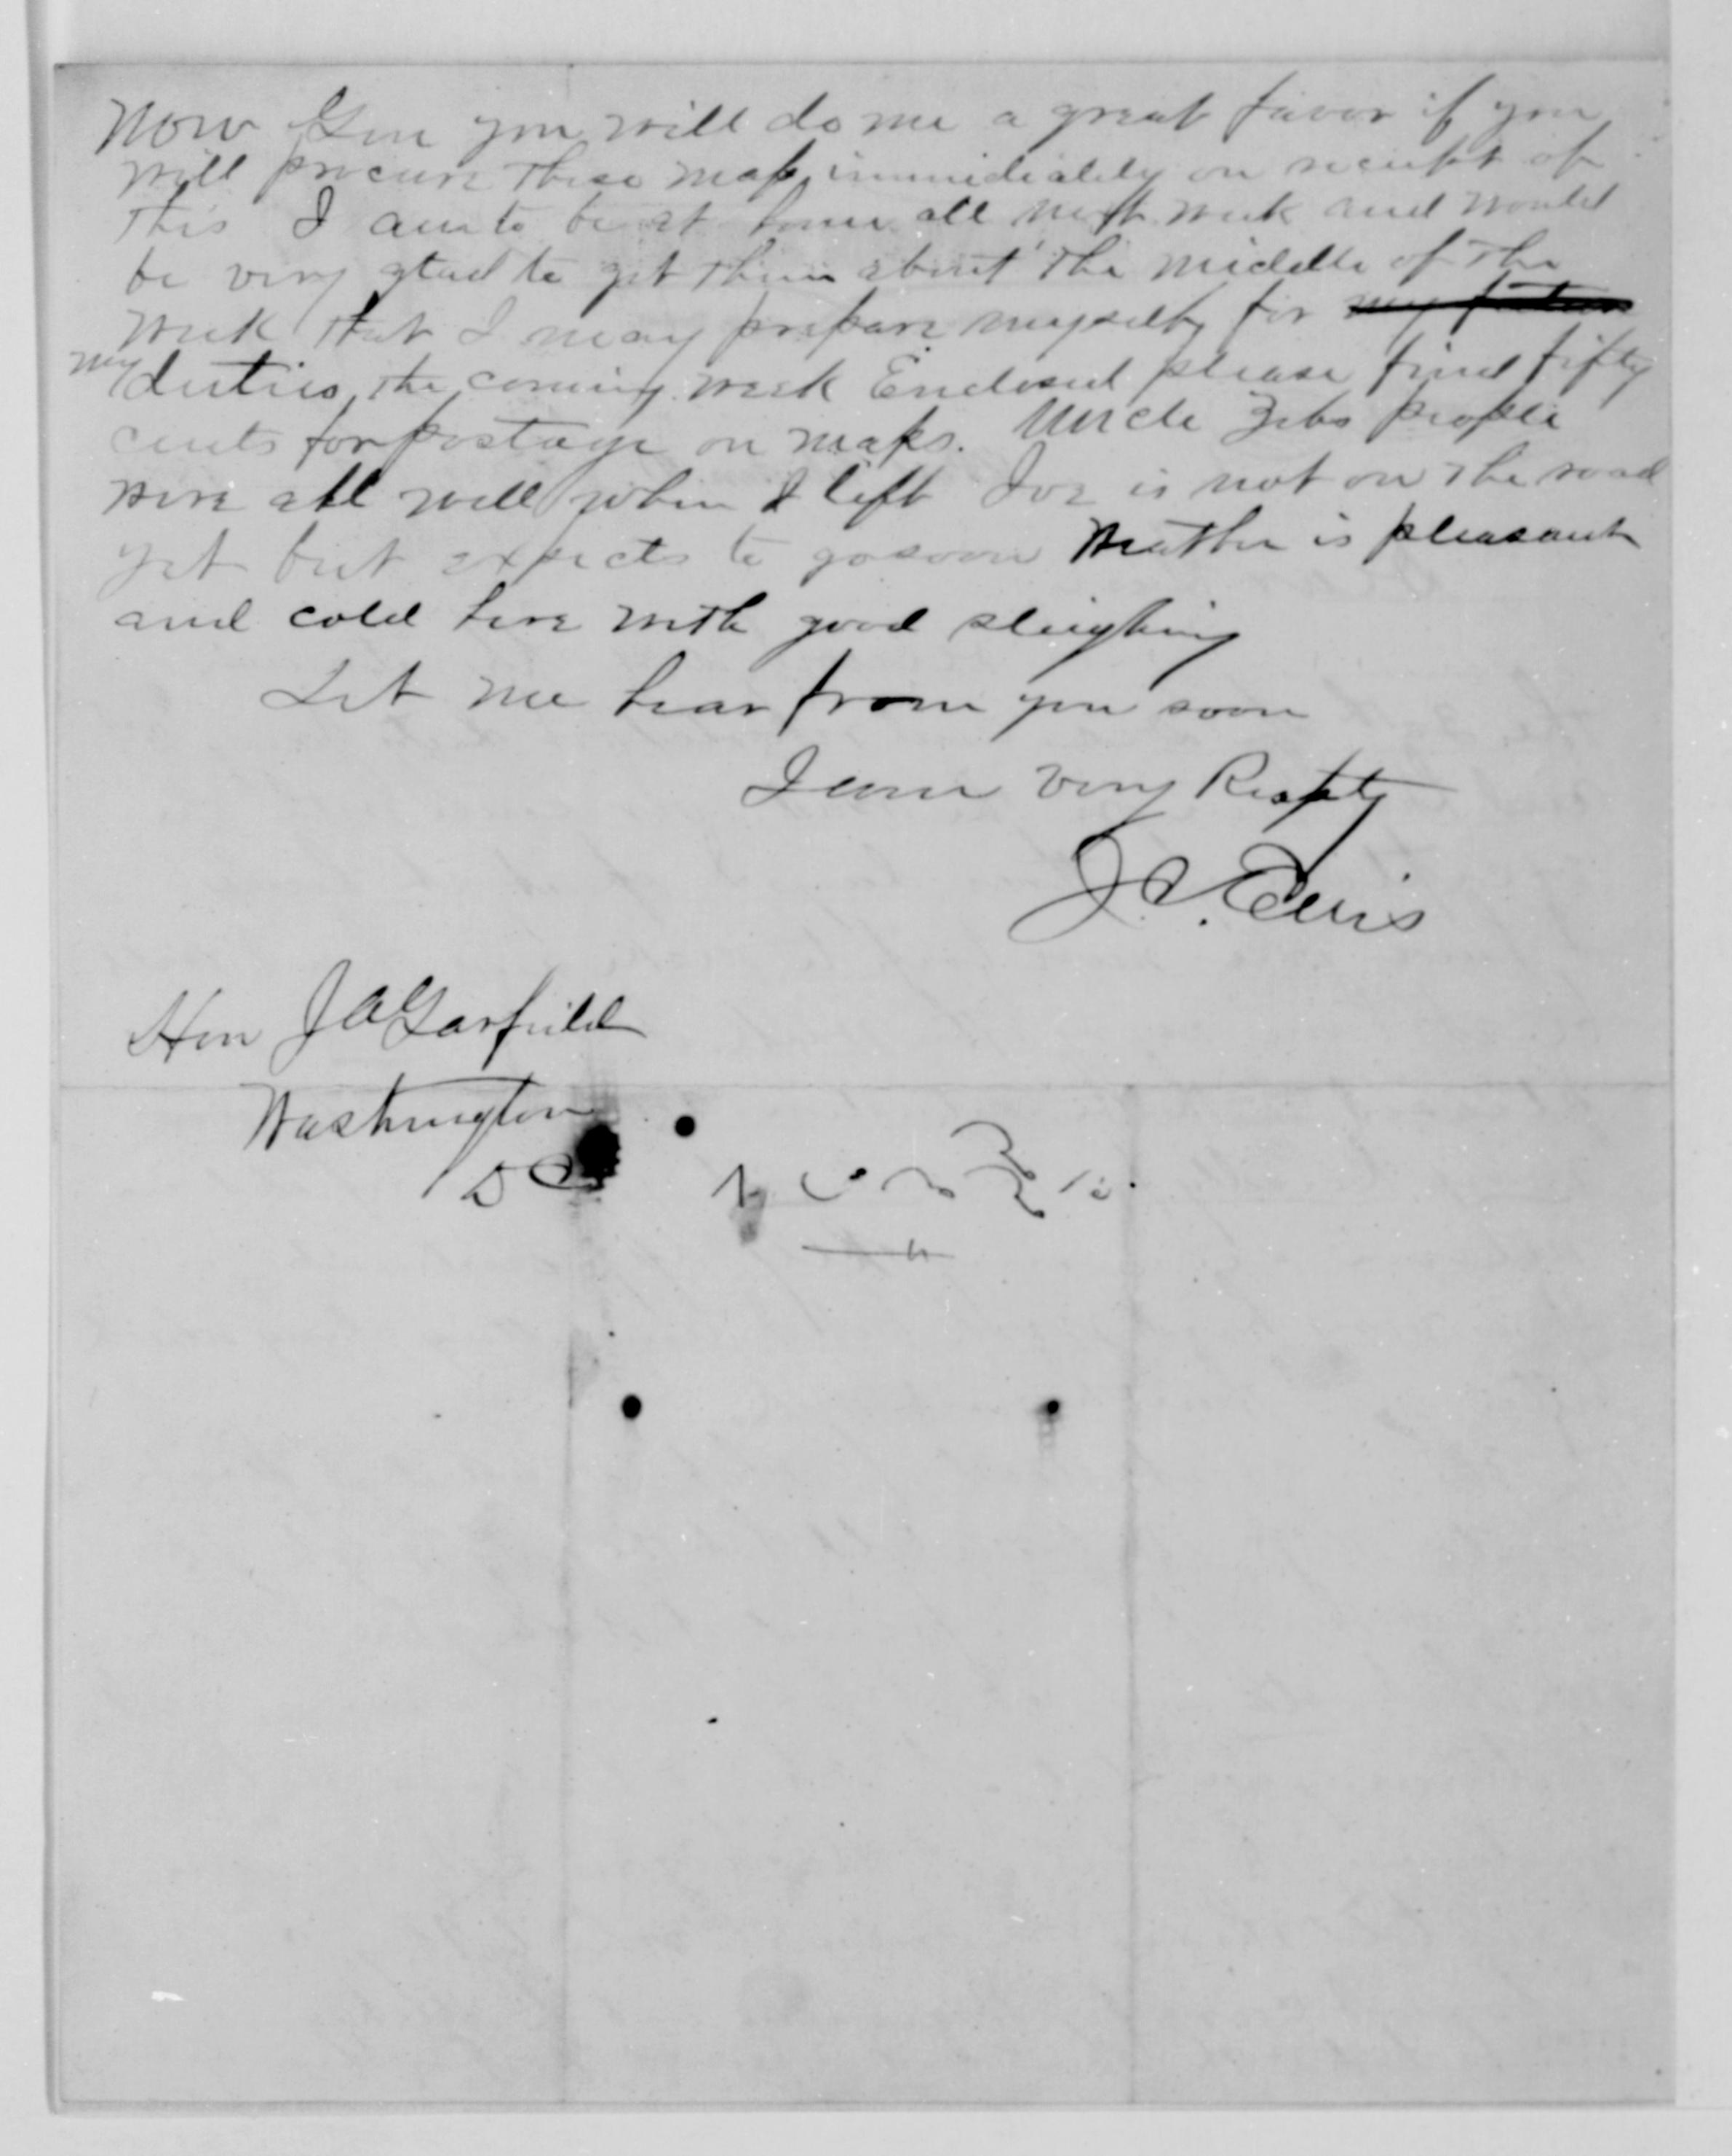 Now Gen you will do me a great favor if you
will procure these maps immediately on receipt of
this I am to be at home all next week and would
be very glad to get them about the middle of the
week that I may prepare myself for my future
my duties the coming week Enclosed please find fifty
cents for postage on maps. Uncle Zebs people
were all well when I left Joe is not on the road
yet but expects to go soon Weather is pleasant
and cold here with good sleighing
Let me hear from you soon
I am very Respty
J. Ellis
Hon J A Garfield
Washington
D C